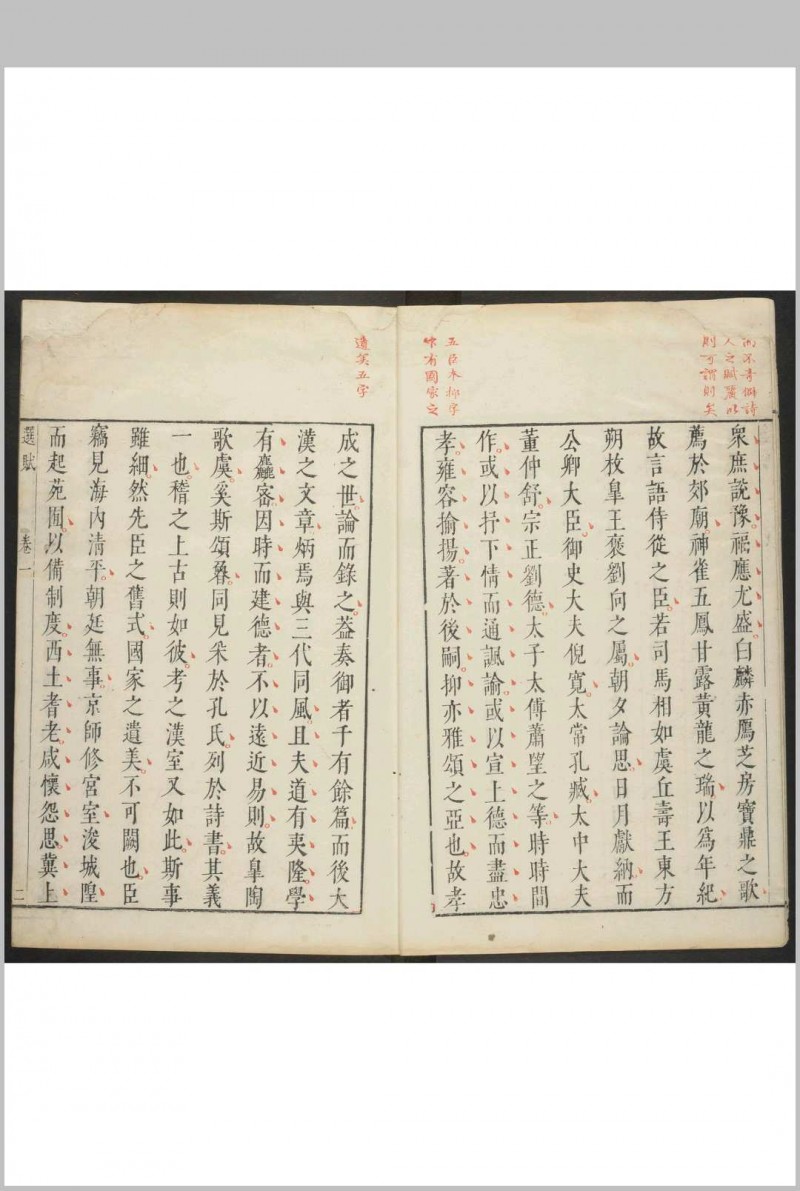 則可謂則矣
眾庶說豫福應尤盛白麟赤鴈芝房寶鼎之歌
薦於郊廟神雀五鳳甘露黃龍之瑞以爲年紀
故言語侍從之臣若司馬相如虞丘壽王東方
朔枚皐王褒劉向之屬朝夕論思日月獻納而
公卿大臣御史大夫倪寬太常孔臧太中大夫
董仲舒宗正劉德太子太傅蕭望之等時時間
作或以抒下情而通諷諭或以宣上德而盡忠
孝雍容揄揚著於後嗣抑亦雅頌之亞也故孝
五臣本抑字
作有國家之
遺美五字
成之世論而錄之葢奏御者千有餘篇而後大
漢之文章炳焉與三代同風且夫道有夷隆學
有麤密因時而建德者不以遠近易則故皐陶
歌虞奚斯頌魯同見采於孔氏列於詩書其義
一也稽之上古則如彼考之漢室又如此斯事
雖細然先臣之舊式國家之遺美不可闕也臣
竊見海內清平朝廷無事京師修宮室浚城隍
而起苑囿以備制度西土耆老咸懷怨思冀上
選賦 卷一 二